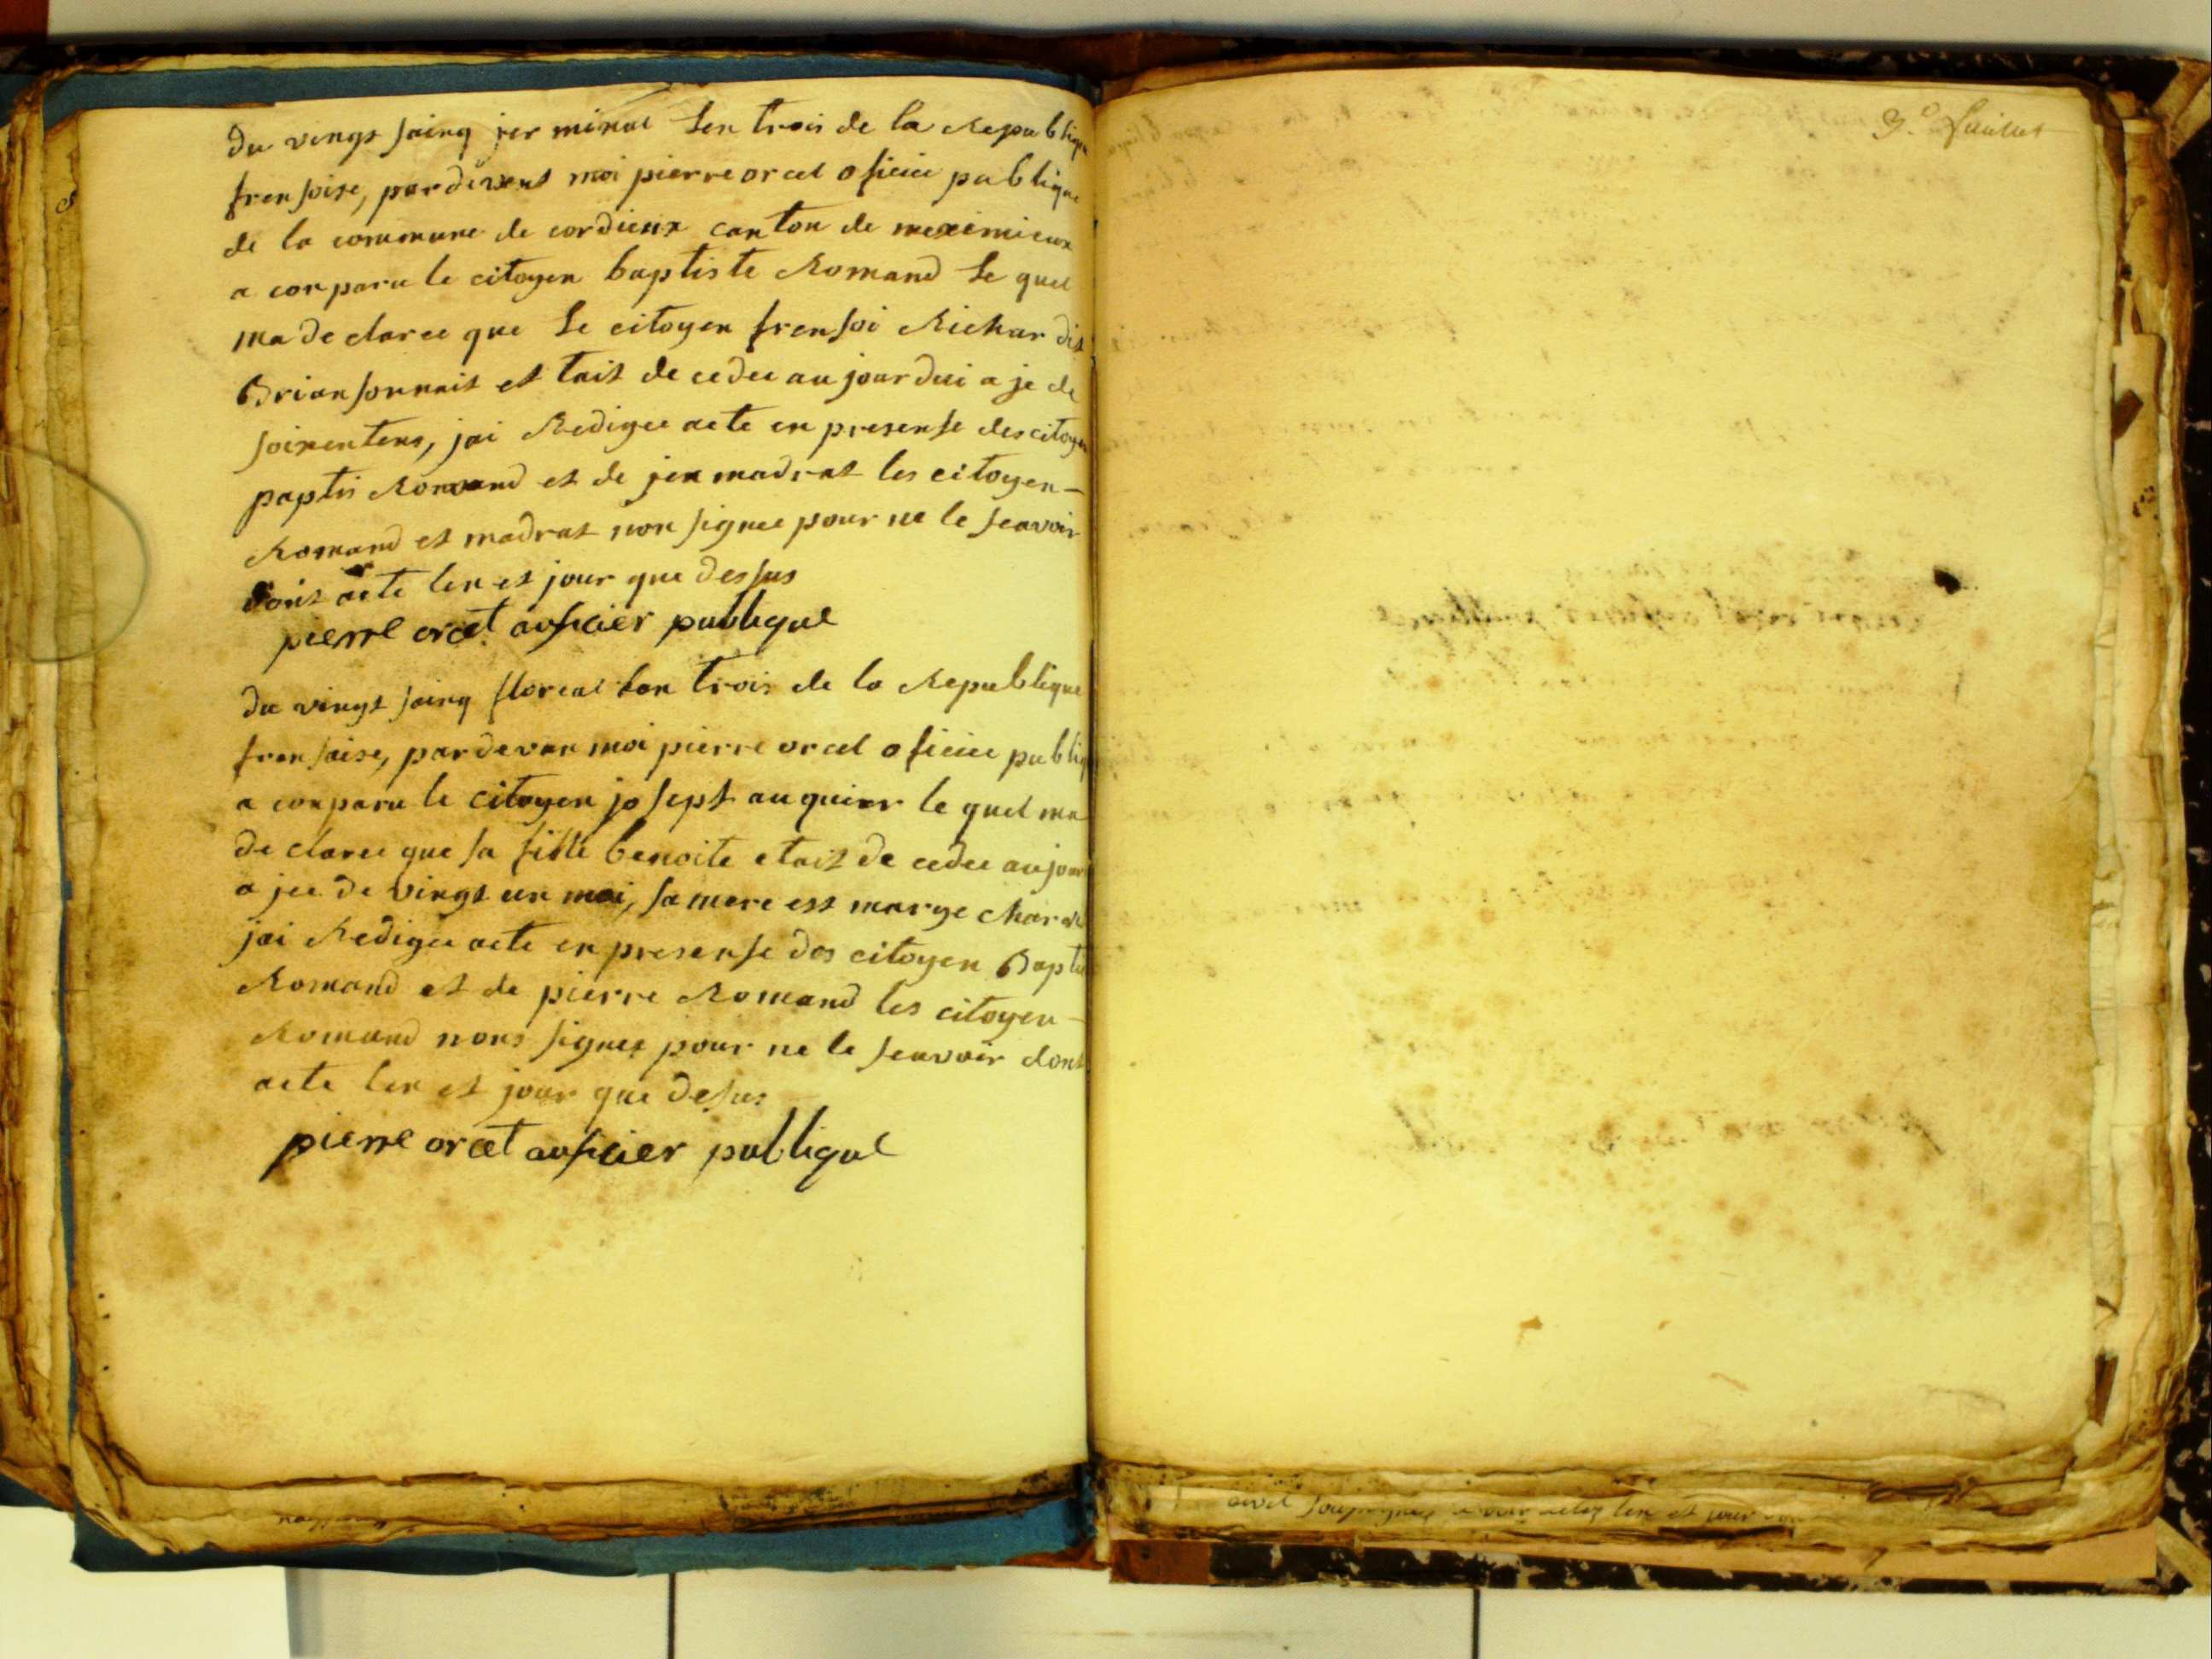 du vingt sainq jer minal Len trois de la Republique
frensoise, pardevent moi pierre orcel oficiee publique
de la commune de cordieux canton de meximieux
a conparu le citoyen baptiste Romand Le quel
ma de claree que Le citoyen frensoi Richar dit
Briansonnait et tait de cedee au jourdui a je de
soixentens, jai Redigee acte en presense des citoyen
paptis Romand et de jen madrat les citoyen
Romand et madrat non signee pour ne le seavoir
dont acte len et jour que dessus
pierre orcet auficier publique
du vingt sainq floreal lan trois de la Republique
fransaise, pardevan moi pierre orcel oficiee publiq
a conparu le citoyen josept auquier le quel ma
de claree que sa fille benoite etait de cedee aujour
a jee de vingt un moi, sa mere est marge
jai Redigee acte en presense des citoyen Baptis
Romand et de pierre Romand les citoyen
Romand nons signez pour ne le seavoir dont
acte len et jour que desus
pierre orcet auficier publique
len et jour